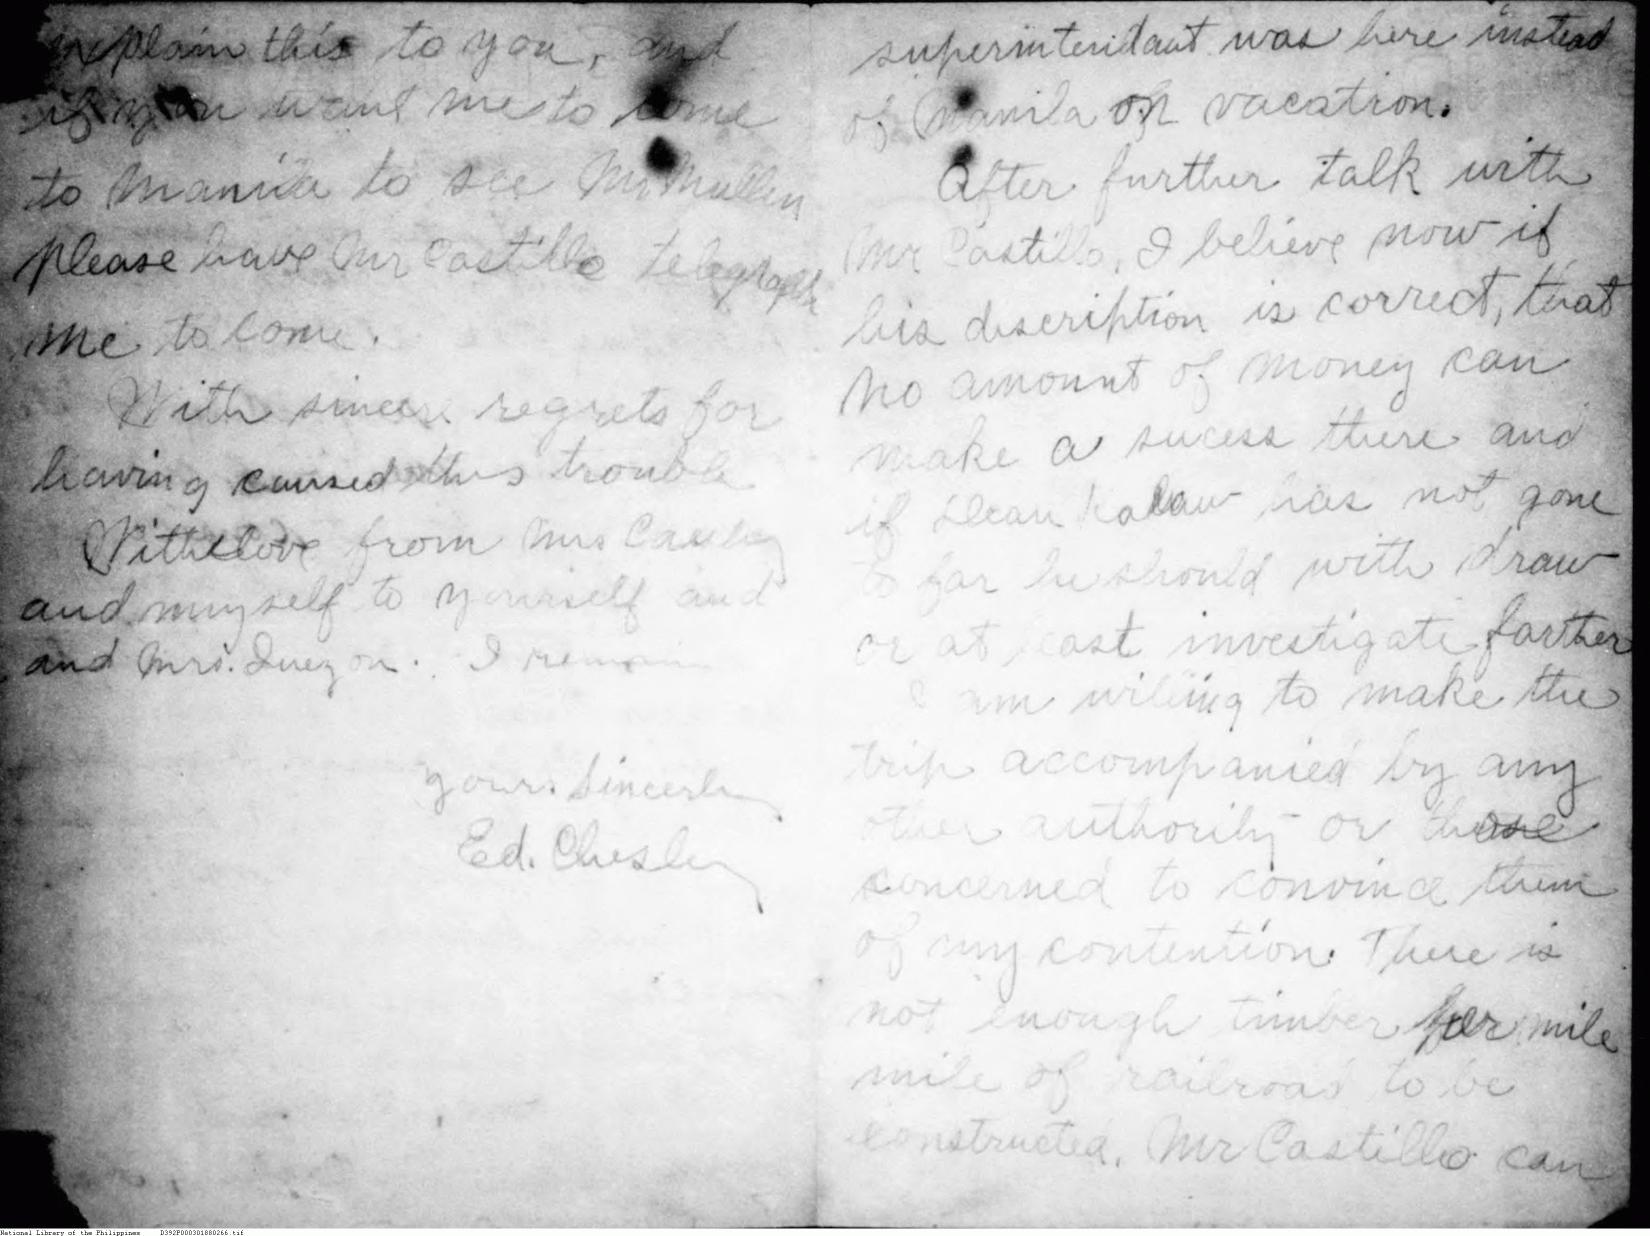 explain this to you, and
if you want me to come
to Manila to see Mr Mullen
please have Mr Castillo telegraph
me to come.
With sincere regrets for
having caused this trouble
With love from Mrs Chesley
and myself to yourself and
and Mrs. Quezon. I remain
yours Sincerly
Ed. Chesley
superintendant was here instead
of Manila on vacation.
After further talk with
Mr Castillo, I believe now if
his discription is correct, that
no amount of money can
make a sucess there and
if Dean Kalaw has not gone
to far he should with draw
or at least investigate farther
I am willing to make the
trip accompanied by any
other authority or those
concerned to convince them
of my contention. There is
not enough timber per mile
mile of railroad to be
constructed. Mr Castillo can
National Library of the Philippines D392P000301880266.tif